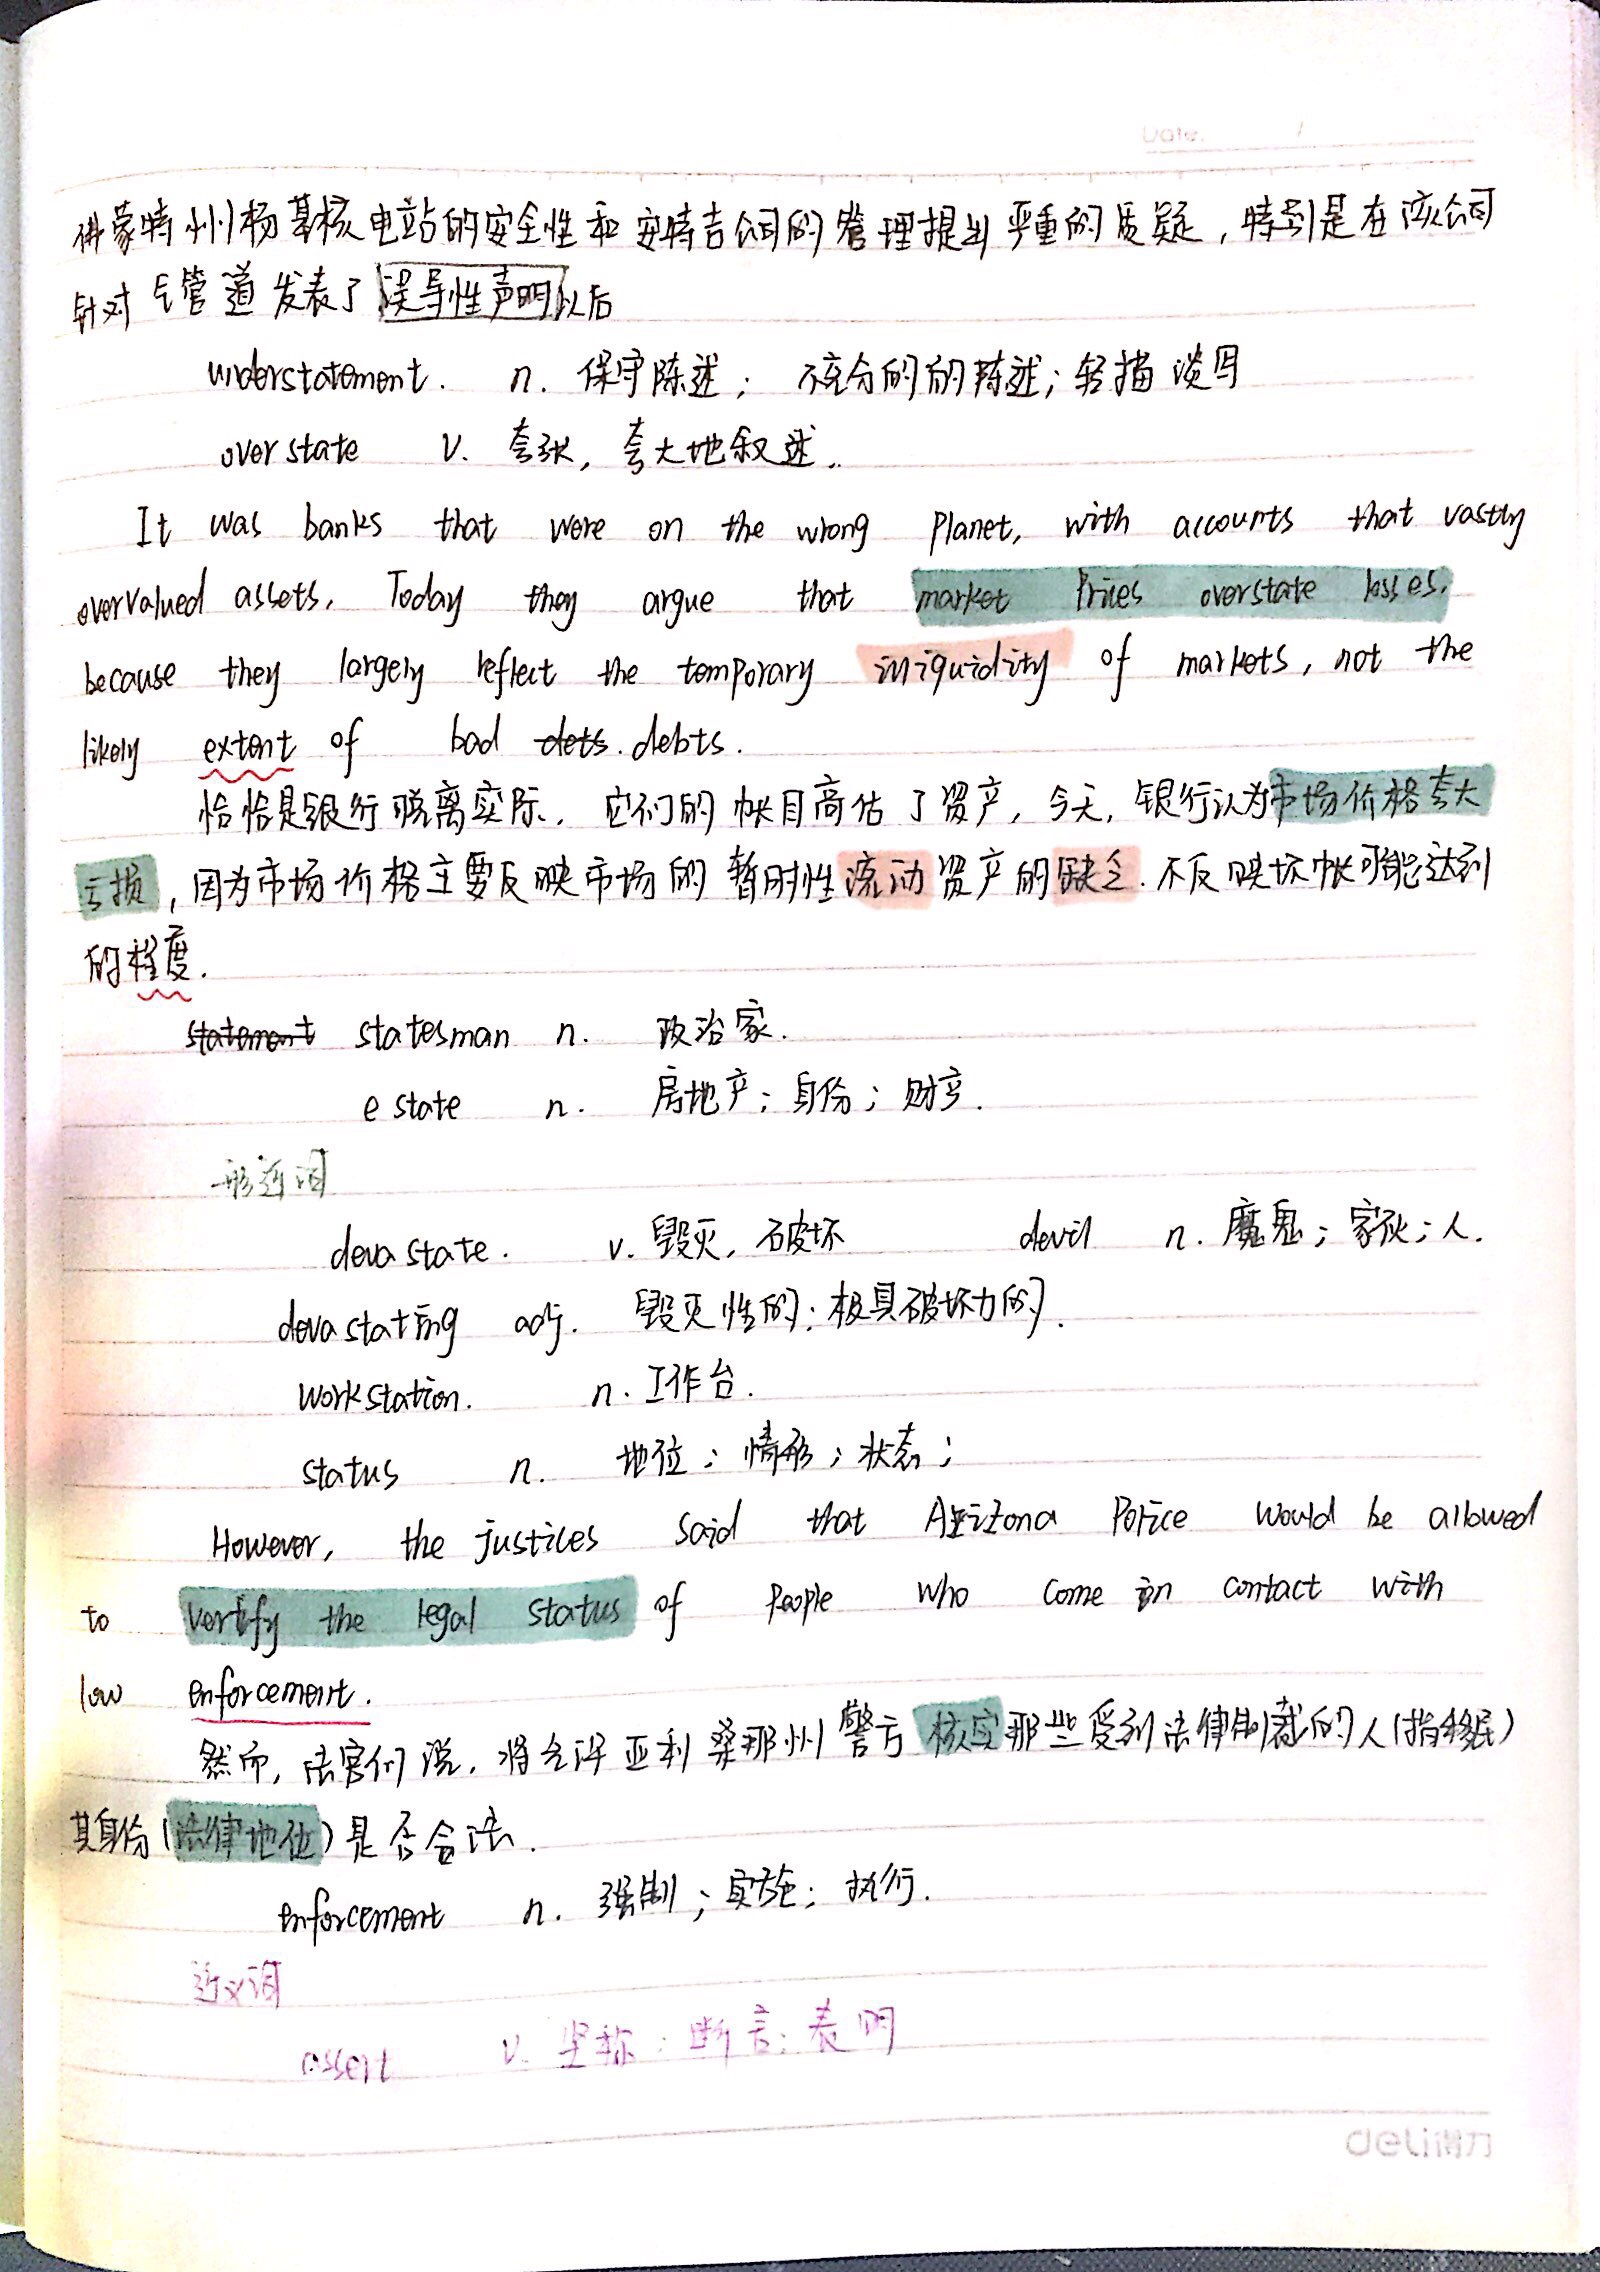 Date. /
佛蒙特州杨基核电站的安全性和安特吉公司的管理提出严重的质疑，特别是在该公司
针对气管道发表了误导性声明以后
understatement. n. 保守陈述； 不充分的的陈述；轻描淡写
overstate v. 夸张，夸大地叙述.
It was banks that were on the wrong planet, with accounts that vastly
overvalued assets. Today they argue that market prices overstate losses.
because they largely reflect the temporary illiquidity of markets, not the
likely extent of bad dets. debts.
恰恰是银行脱离实际. 它们的帐目高估了资产，今天，银行认为市场价格夸大
亏损，因为市场价格主要反映市场的暂时性流动资产的缺乏.不反映坏帐可能达到
的程度.
statement statesman n. 政治家.
estate n. 房地产；身份；财产.
形近词
devastate. v. 毁灭，破坏 devil n. 魔鬼；家伙；人.
devastating adj. 毁灭性的；极具破坏力的.
workstation. n. 工作台.
status n. 地位；情形；状态；
However, the justices said that Arizona Police would be allowed
to vertify the legal status of people who come in contact with
law enforcement.
然而，法官们说，将允许亚利桑那州警方核实那些受到法律制裁的人（指移民）
其身份（法律地位）是否合法.
enforcement n. 强制；实施；执行.
近义词
assert v. 坚称；断言；表明
deli得力